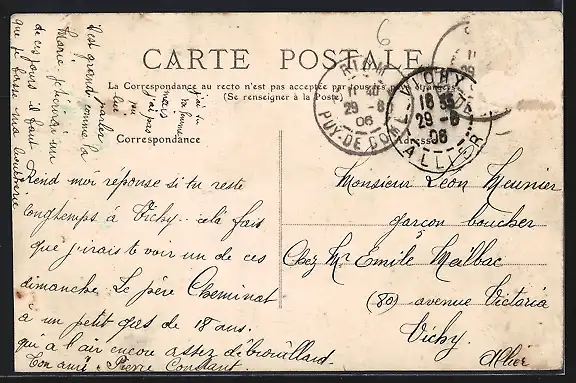 CARTE POSTALE
La Correspondance au recto n'est pas acceptée par tous les pays étrangers
(Se renseigner à la Poste)
Correspondance
Adresse
6
RIOM
29 -6
06
PUY-DE-DOME
VICHY
18 35
29 -6
06
ALLIER
Rend moi réponse si tu reste
longtemps à Vichy cela fait
que j'irais te voir un de ces
dimanche. Le père Cheminat
a un petit gars de 18 ans.
qui à l'air encore assez débrouillard.
Ton ami Pierre Constant
j'ai vu
sa femme
mais
j'ai pas
pu
lui
parler
il est grand comme la
Marie je t'écrirai un
de ces jours il faut
que je
Monsieur Léon Meunier
garçon boucher
Chez Mr Emile Malbac
(80) avenue Victoria
Vichy.
Allier